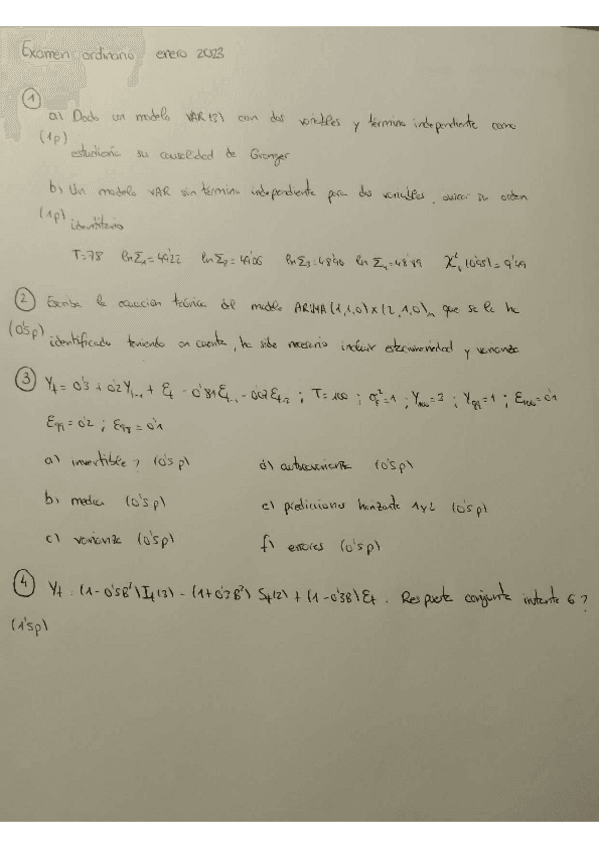 Examen ordinario enero 2023
①
a) Dado un modelo VAR(3) con dos variables y término independiente como
(1p)
estudiaría su causalidad de Granger
b) Un modelo VAR sin término independiente para dos variables, su orden
(1p) identifíquelo
T=78 ln Σ₁=49'22 ln Σ₂=49'06 ln Σ₃=48'90 ln Σ₄=48'89 χ²₄ (0'95)=9'49
② Escriba la ecuación teórica del modelo ARIMA(1,1,0)x(2,1,0) que se le ha
(0'5p) identificado teniendo en cuenta, ha sido necesario incluir estacionariedad y varianza
③ Yₜ = 0'3 + 0'2Yₜ₋₁ + Eₜ - 0'81Eₜ₋₁ - 0'07Eₜ₋₂ ; T=100 ; σ²=1 ; Y₁₀₀=3 ; Y₉₉=1 ; E₁₀₀=0'1
E₉₉=0'2 ; E₉₈=0'1
a) invertible? (0'5p) d) autocovariante (0'5p)
b) media (0'5p) e) predicciones horizonte 1y2 (0'5p)
c) varianza (0'5p) f) errores (0'5p)
④ Yₜ = (1-0'5B²)Iₜ(3) - (1+0'3B²) Sₜ(2) + (1-0'3B)Eₜ. Respuesta conjunta instante 6?
(1'5p)